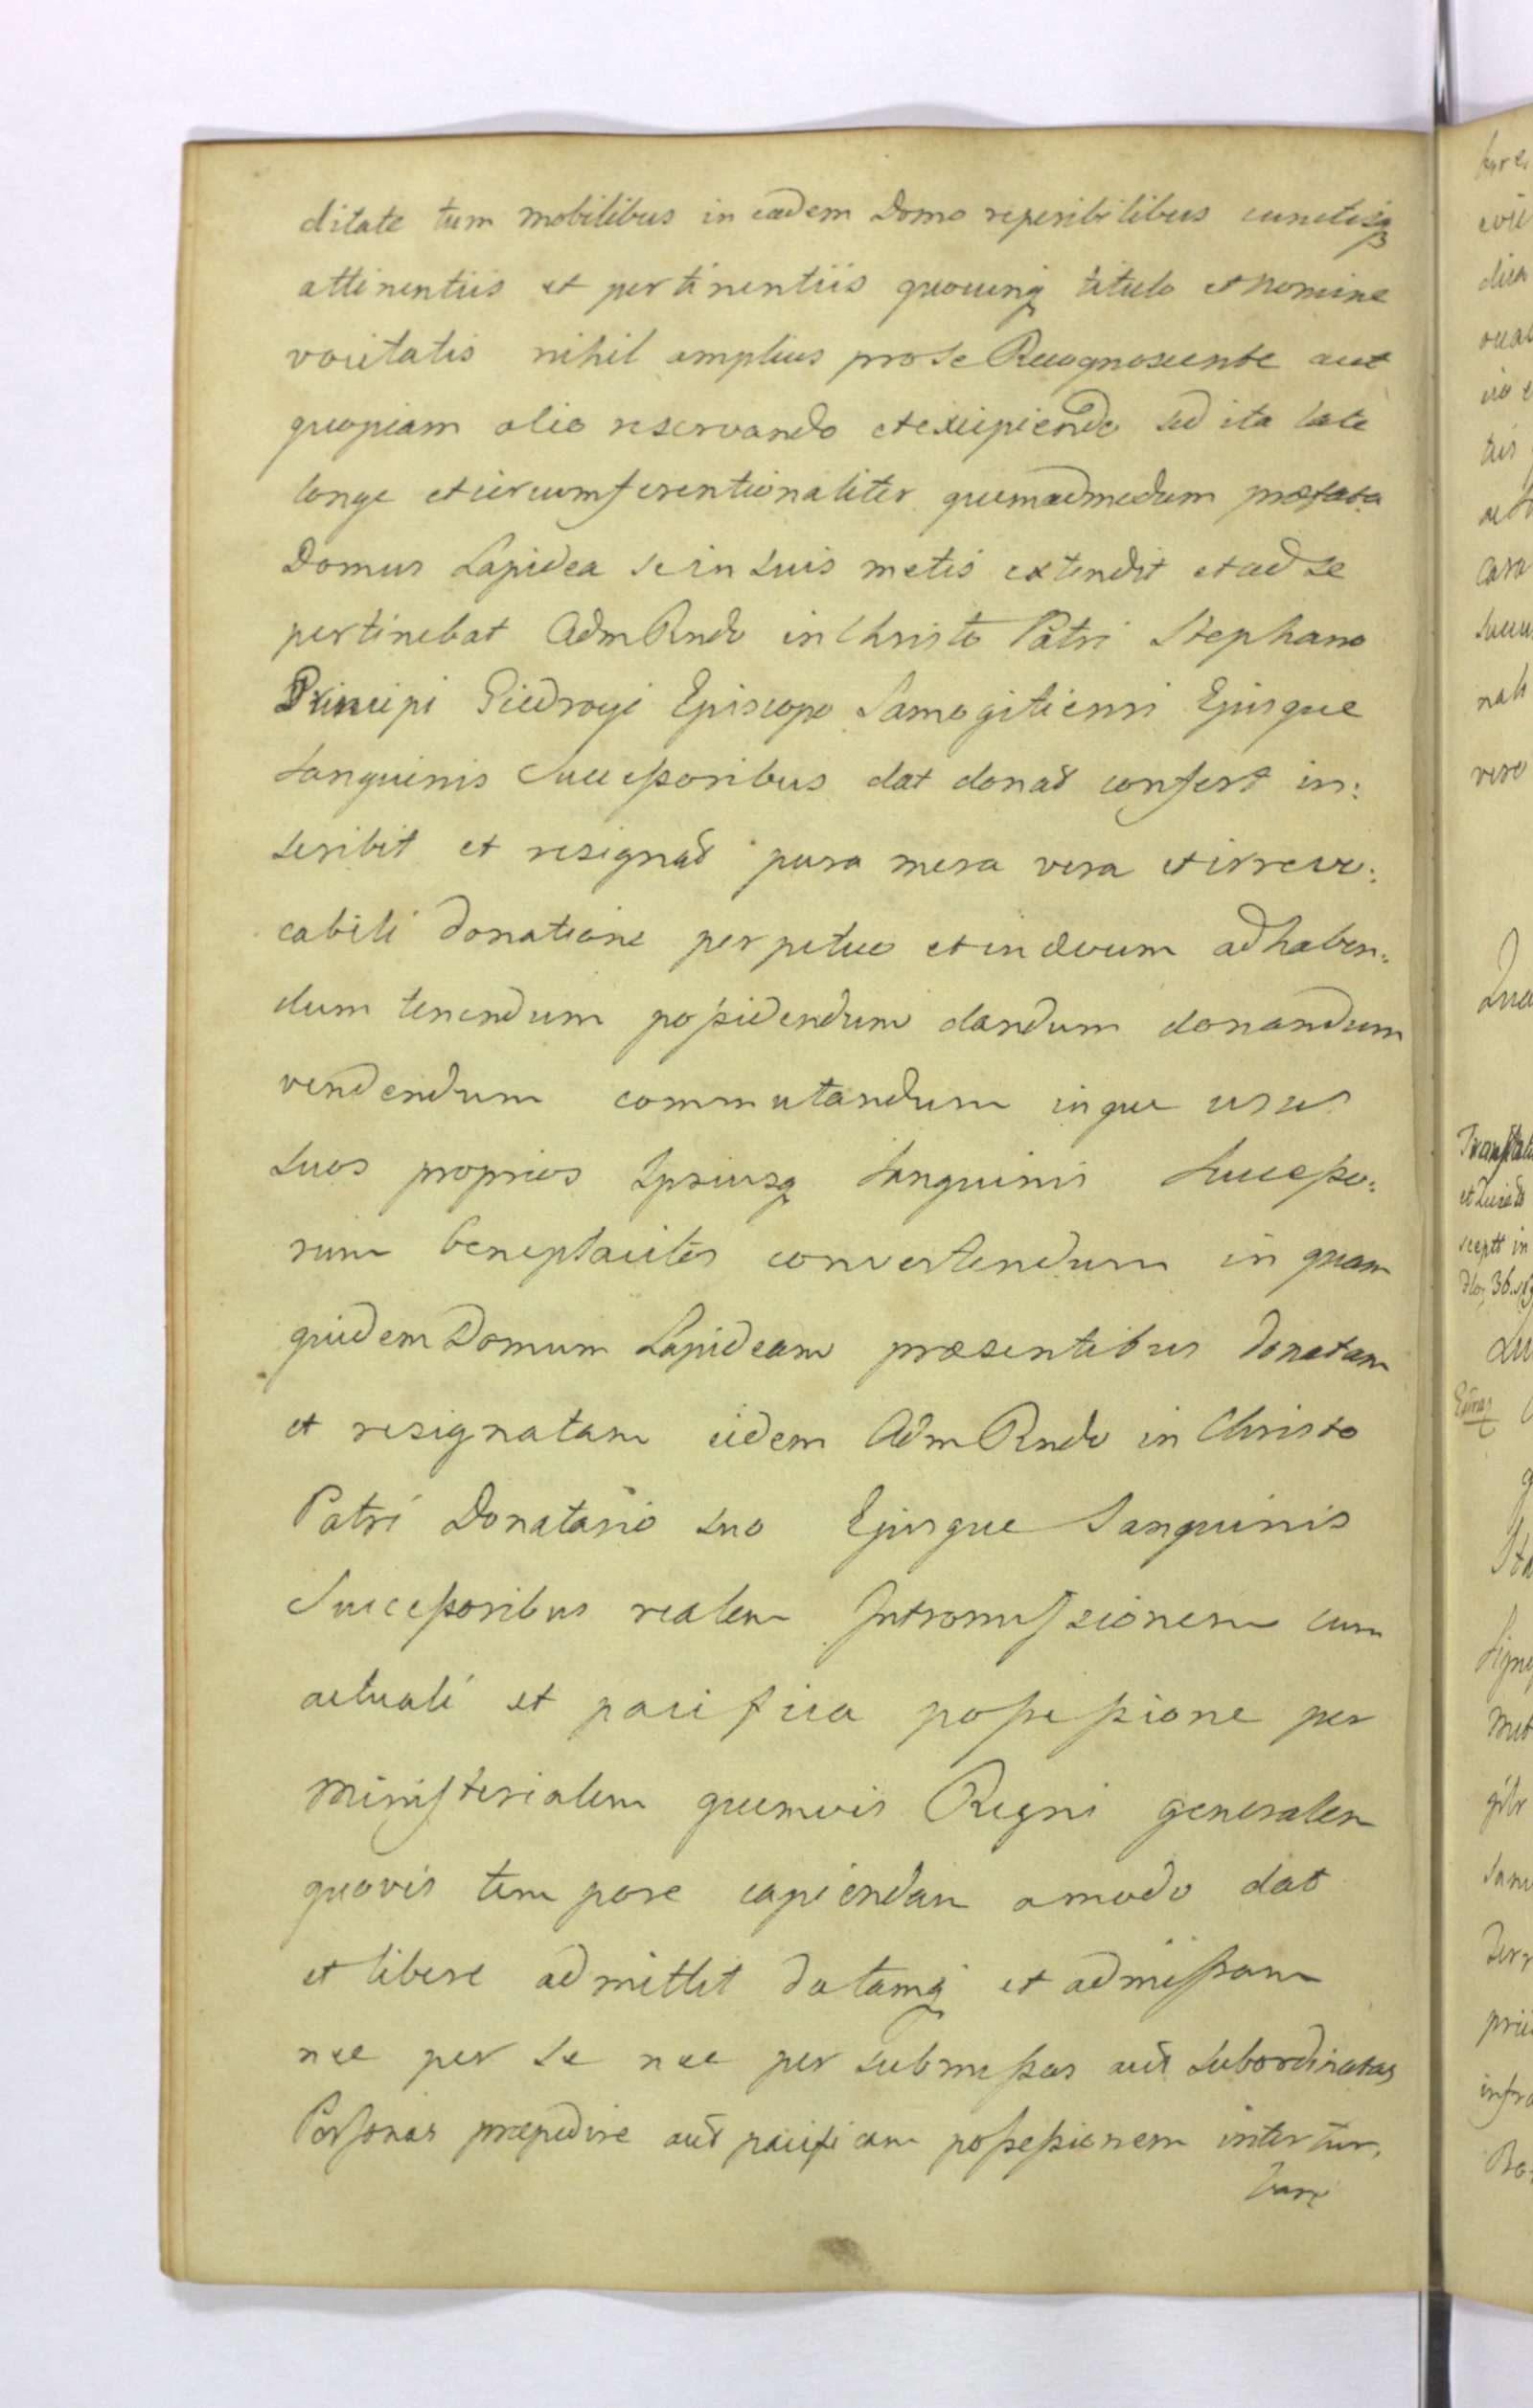 ditate tum mobilibus in eadem Domo reperibilibus cunctisq
attinentiis et pertinentiis quocunq titulo et nomine
vocitatis nihil amplius pro se Recognoscente aut
quopiam alio reservando et excipiendo sed ita late
longe et circumferentionaliter quemadmodum præfata
Domus Lapidea se in suis metis extendit et ad se
pertinebat Adm Rndo in Christo Patri Stephano
Principi Giedroyć Episcopo Samogitiensi Ejusque
Sanguinis Successoribus dat donat confert in:
scribit et resignat pura mera vera et irrevo:
cabili donatione perpetuo et in ævum ad haben:
dum tenendum possidendum dandum donandum
vendendum commutandum inque usus
suos proprios Ipsiusq Sanguinis Successo:
rum beneplacitos convertendum in quam
quidem Domum Lapideam præsentibus donatam
et resignatam eidem Adm Rndo in Christo
Patri Donatario suo Ejusque Sanguinis
Successoribus realem Intromissionem cum
actuali et pacifica possessione per
Ministerialem quemvis Regni generalem
quovis tempore capiendam amodo dat
et libere admittit datamq et admissam
nec per se nec per submissas aut subordinatas
Personas præpedire aut pacificam possessionem intertur,
bare